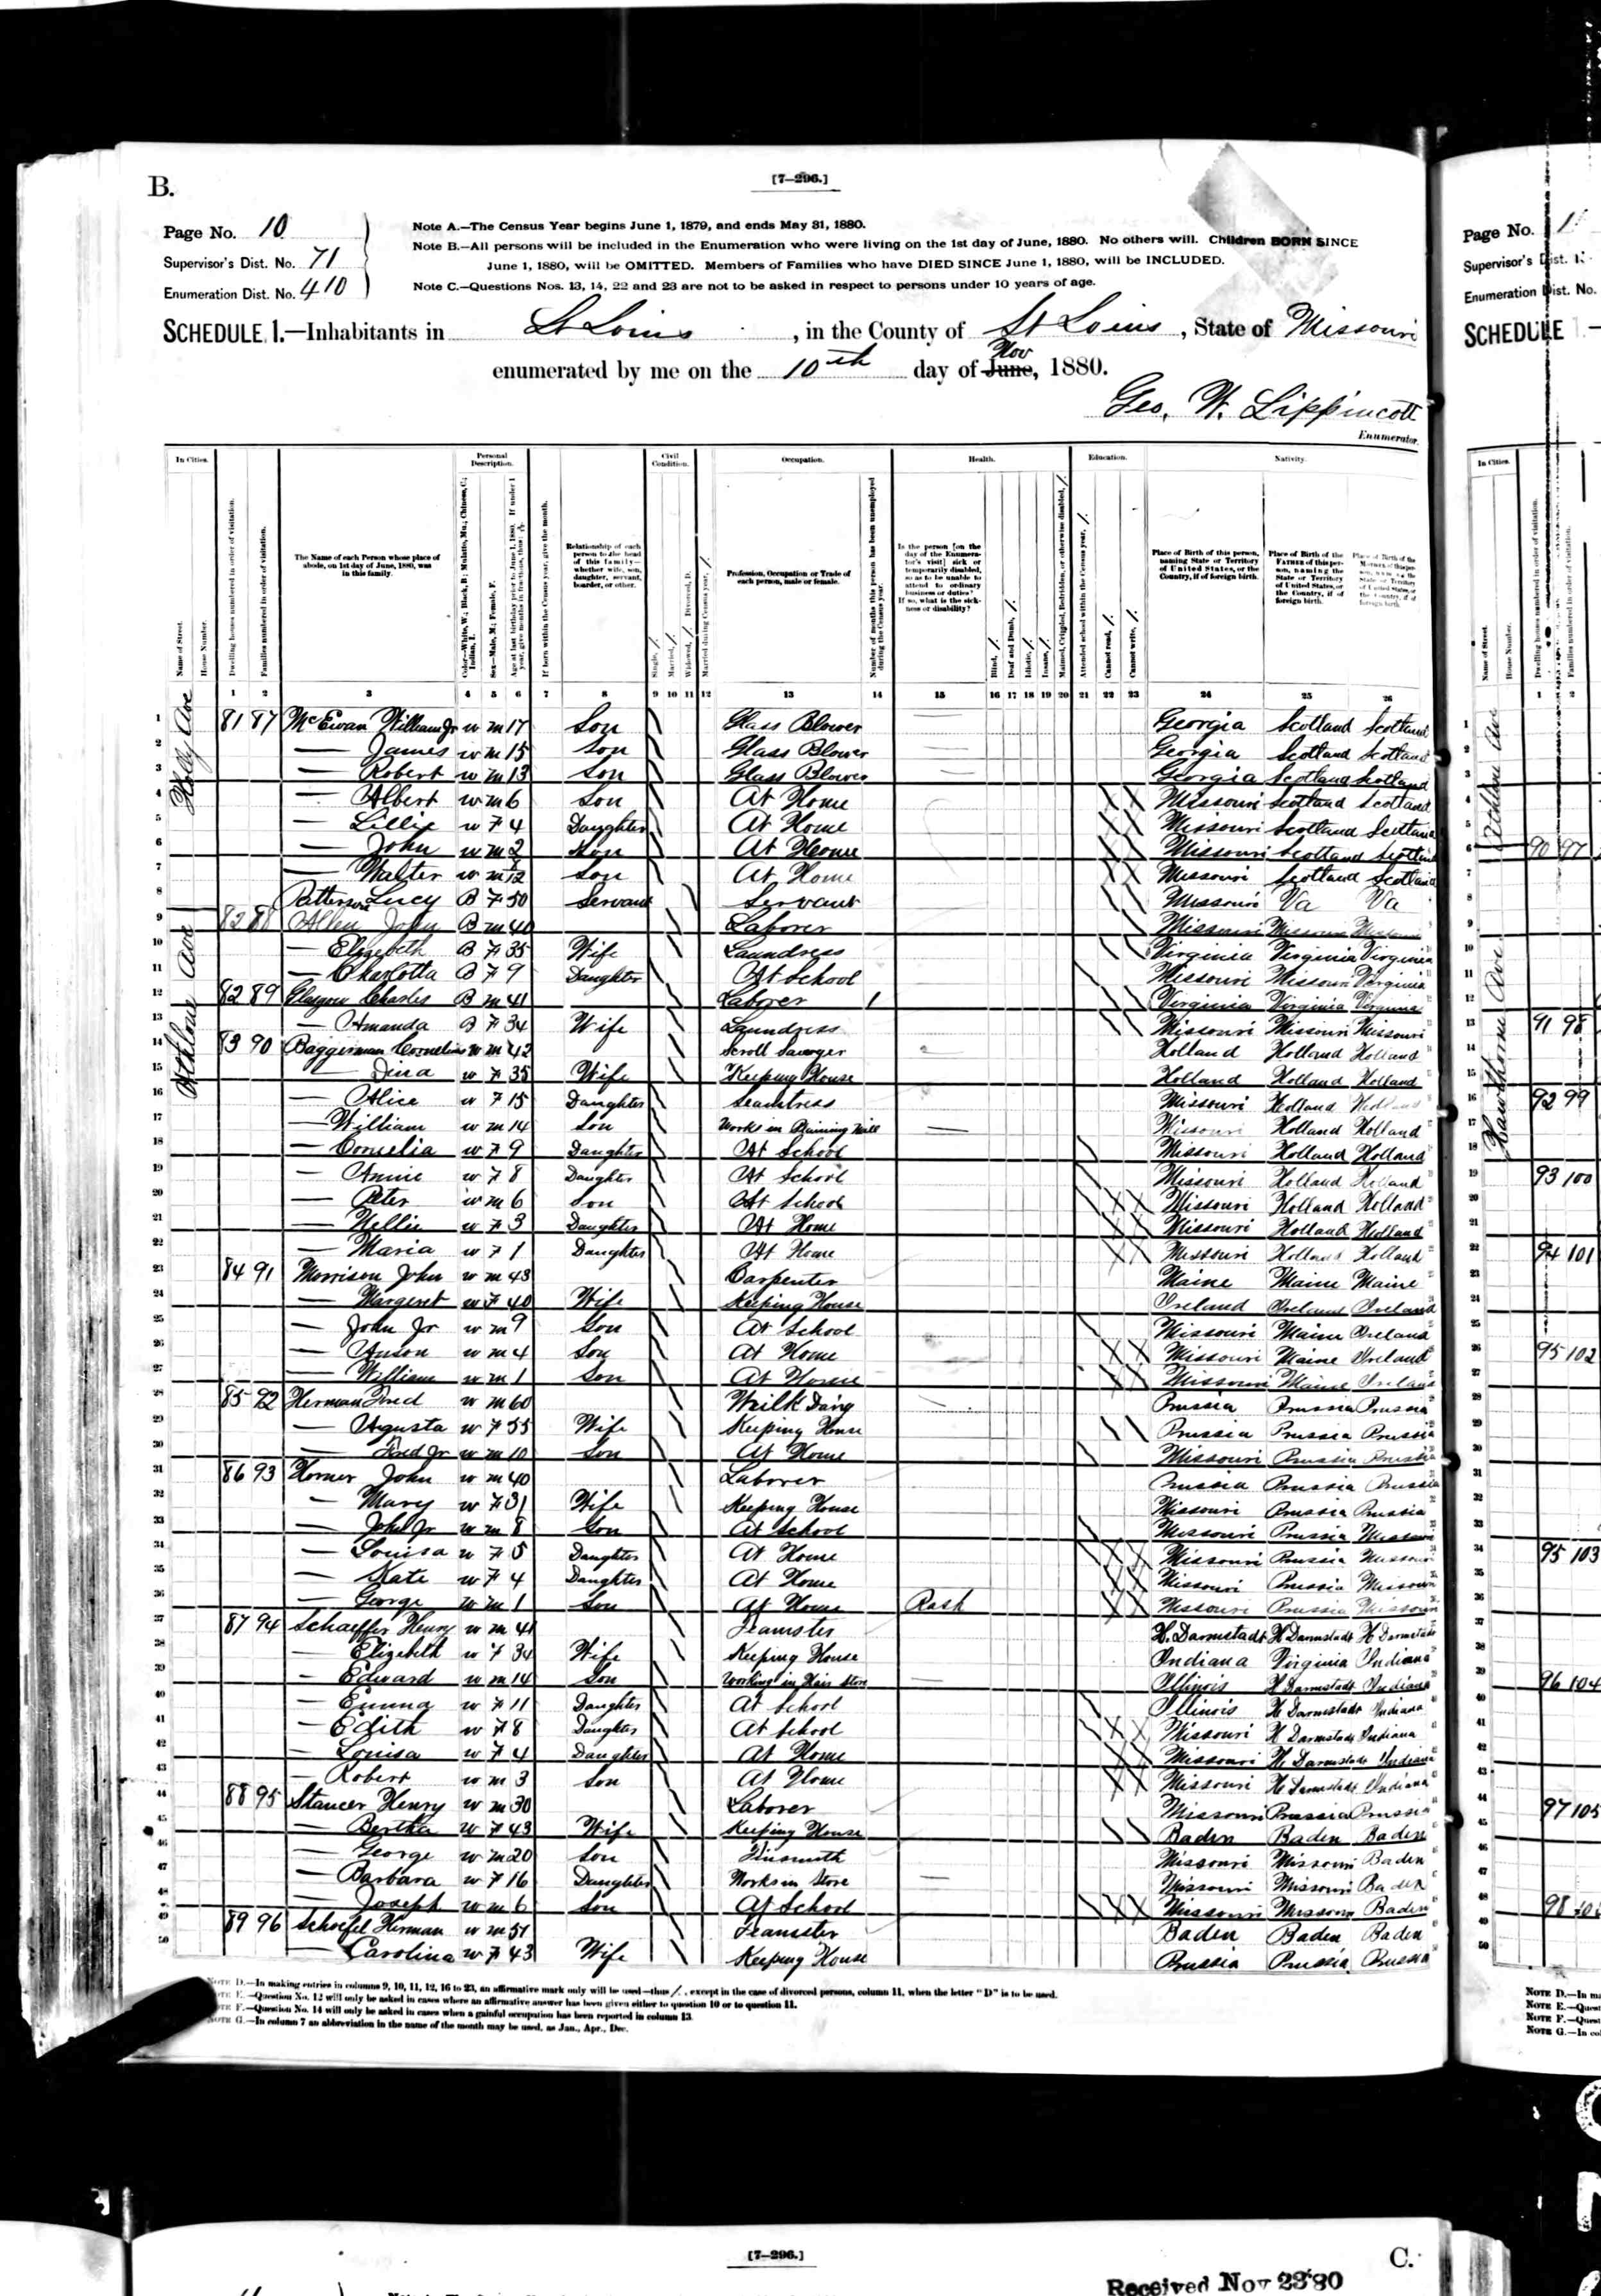 B.
[7—296.]
Page No. 10
Supervisor's Dist. No. 71
Enumeration Dist. No. 410
Note A.—The Census Year begins June 1, 1879, and ends May 31, 1880.
Note B.—All persons will be included in the Enumeration who were living on the 1st day of June, 1880. No others will. Children BORN SINCE
June 1, 1880, will be OMITTED. Members of Families who have DIED SINCE June 1, 1880, will be INCLUDED.
Note C.—Questions Nos. 13, 14, 22 and 23 are not to be asked in respect to persons under 10 years of age.
SCHEDULE 1.—Inhabitants in St Louis, in the County of St Louis, State of Missouri
enumerated by me on the 10th day of June, Nov 1880.
Geo. W. Lippincott
Enumerator.
In Cities. Personal Description. Civil Condition. Occupation. Health. Education. Nativity.
Name of Street. House Number. Dwelling houses numbered in order of visitation. Families numbered in order of visitation.
The Name of each Person whose place of abode, on 1st day of June, 1880, was in this family.
Relationship of each person to the head of this family—whether wife, son, daughter, servant, boarder, or other.
Profession, Occupation or Trade of each person, male or female.
Place of Birth of this person, naming State or Territory of United States, or the Country, if of foreign birth.
Place of Birth of the FATHER of this person, naming the State or Territory of United States, or the Country, if of foreign birth.
1 2 3 4 5 6 7 8 9 10 11 12 13 14 15 16 17 18 19 20 21 22 23 24 25 26
Holly Ave
1 81 87 McEwan William Jr w m 17 Son Glass Blower Georgia Scotland Scotland
2 — James w m 15 Son Glass Blower Georgia Scotland Scotland
3 — Robert w m 13 Son Glass Blower Georgia Scotland Scotland
4 — Albert w m 6 Son At Home Missouri Scotland Scotland
5 — Lillie w F 4 Daughter At Home Missouri Scotland Scotland
6 — John w m 2 Son At Home Missouri Scotland Scotland
7 — Walter w m Son At Home Missouri Scotland Scotland
8 Patterson Lucy B F 50 Servant Servant Missouri Va Va
Athlone Ave
9 82 88 Allen John B m 40 Laborer Missouri Missouri Missouri
10 — Elizebeth B F 35 Wife Laundress Virginia Virginia Virginia
11 — Charlotta B F 9 Daughter At School Missouri Missouri Virginia
12 82 89 Glasgow Charles B m 41 Laborer 1 Virginia Virginia Virginia
13 — Amanda B F 34 Wife Laundress Missouri Missouri Missouri
14 83 90 Baggerman Cornelius w m 42 Scroll Sawyer Holland Holland Holland
15 — Dina w F 35 Wife Keeping House Holland Holland Holland
16 — Alice w F 15 Daughter Seamtress Missouri Holland Holland
17 — William w m 14 Son Works in Plaining Mill Missouri Holland Holland
18 — Cornelia w F 9 Daughter At School Missouri Holland Holland
19 — Annie w F 8 Daughter At School Missouri Holland Holland
20 — Peter w m 6 Son At School Missouri Holland Holland
21 — Nellie w F 3 Daughter At Home Missouri Holland Holland
22 — Maria w F 1 Daughter At Home Missouri Holland Holland
23 84 91 Morrison John w m 43 Carpenter Maine Maine Maine
24 — Margeret w F 40 Wife Keeping House Ireland Ireland Ireland
25 — John Jr w m 9 Son At School Missouri Maine Ireland
26 — Anson w m 4 Son At Home Missouri Maine Ireland
27 — William w m 1 Son At Home Missouri Maine Ireland
28 85 92 Herman Fred w m 60 Prussia Prussia Prussia
29 — Augusta w F 55 Wife Keeping House Prussia Prussia Prussia
30 — Fred Jr w m 10 Son At Home Missouri Prussia Prussia
31 86 93 Horner John w m 40 Laborer Prussia Prussia Prussia
32 — Mary w F 31 Wife Keeping House Missouri Prussia Prussia
33 — John Jr w m 8 Son At School Missouri Prussia Missouri
34 — Louisa w F 5 Daughter At Home Missouri Prussia Missouri
35 — Kate w F 4 Daughter At Home Missouri Prussia Missouri
36 — George w m 1 Son At Home Rash Missouri Prussia Missouri
37 87 94 Schaeffer Henry w m 41 Teamster H. Darmstadt H Darmstadt H Darmstadt
38 — Elizabeth w F 34 Wife Keeping House Indiana Virginia Indiana
39 — Edward w m 14 Son Working in Hair Store Illinois H Darmstadt Indiana
40 — Emma w F 11 Daughter At School Illinois H Darmstadt Indiana
41 — Edith w F 8 Daughter At School Missouri H Darmstadt Indiana
42 — Louisa w F 4 Daughter At Home Missouri H Darmstadt Indiana
43 — Robert w m 3 Son At Home Missouri H Darmstadt Indiana
44 88 95 Stancer Henry w m 30 Laborer Missouri Prussia Prussia
45 — Bertha w F 43 Wife Keeping House Baden Baden Baden
46 — George w m 20 Son Tinsmith Missouri Missouri Baden
47 — Barbara w F 16 Daughter Works in Store Missouri Missouri Baden
48 — Joseph w m 6 Son At School Missouri Missouri Baden
49 89 96 Schoefel Herman w m 51 Teamster Baden Baden Baden
50 — Carolina w F 43 Wife Keeping House Prussia Prussia Prussia
NOTE D.—In making entries in columns 9, 10, 11, 12, 16 to 23, an affirmative mark only will be used—thus /, except in the case of divorced persons, column 11, when the letter "D" is to be used.
NOTE E.—Question No. 12 will only be asked in cases where an affirmative answer has been given either to question 10 or to question 11.
NOTE F.—Question No. 14 will only be asked in cases when a gainful occupation has been reported in column 13.
NOTE G.—In column 7 an abbreviation in the name of the month may be used, as Jan., Apr., Dec.
[7—296.]
C.
Received Nov 23 80